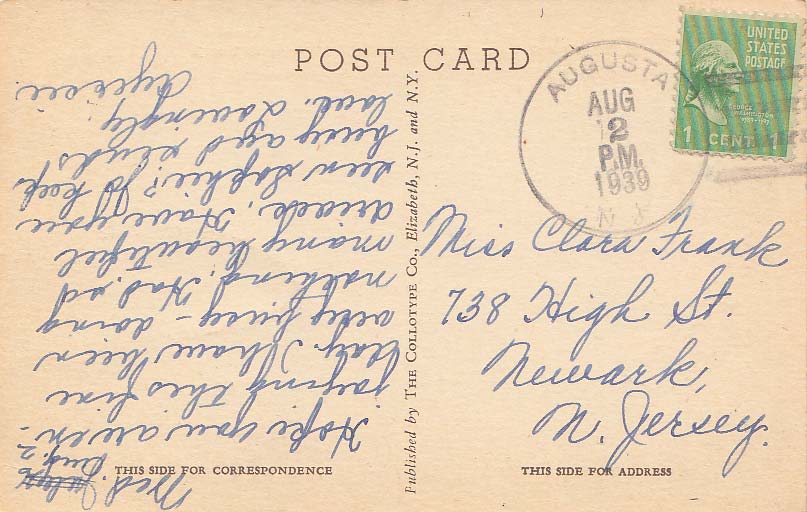 POST CARD
UNITED
STATES
POSTAGE
GEORGE
WASHINGTON
1789-1797
1 CENT 1
AUGUSTA
AUG
2
P.M.
1939
N J
Wed. July
Aug. 2
Hope you are en-
joying this fine
day. I have been
very busy - doing
nothing. Had
many beautiful
Have you
seen Sophie? Do keep
busy
luck. Lovingly,
Published by THE COLLOTYPE CO., Elizabeth, N.J. and N.Y.
Miss Clara Frank
738 High St.
Newark,
N. Jersey.
THIS SIDE FOR CORRESPONDENCE
THIS SIDE FOR ADDRESS